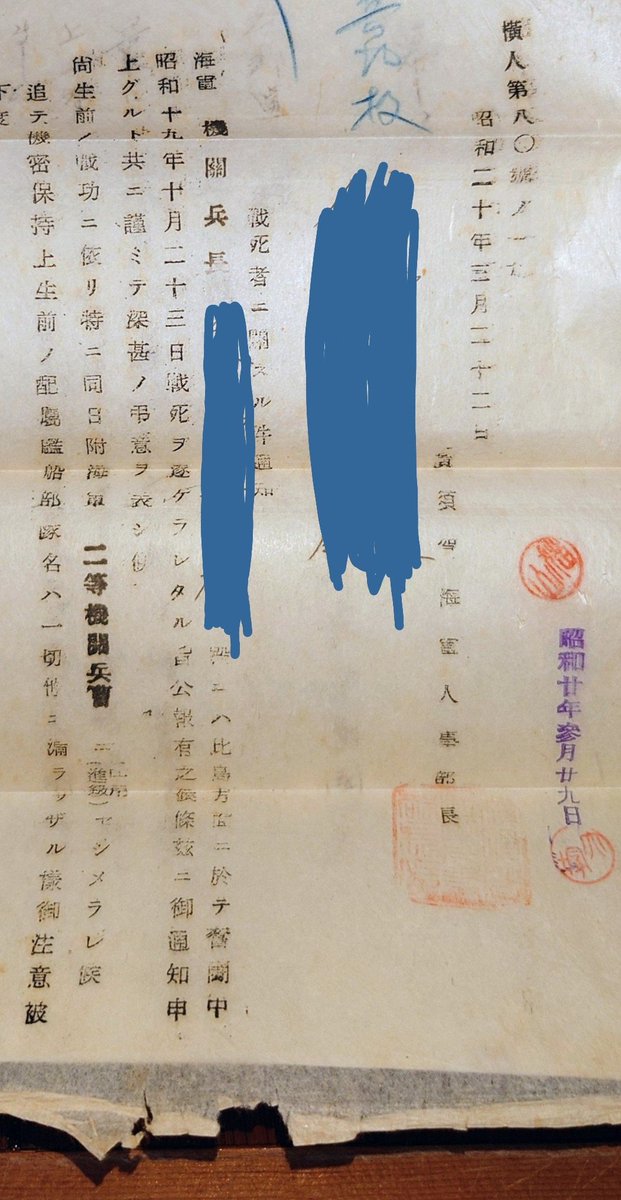 横人第八〇號ノ一
昭和二十年三月二十二日
横須賀海軍人事部長
枚
戰死者ニ關スル件通知
海軍機關兵長
殿ニハ比島方面ニ於テ奮鬪中
昭和十九年十月二十三日戰死ヲ遂ゲラレタル旨公報有之候條茲ニ御通知申
上グルト共ニ謹ミテ深甚ノ弔意ヲ表シ候
尚生前ノ戰功ニ依リ特ニ同日附海軍二等機關兵曹ニ(進級)セシメラレ候
追テ機密保持上生前ノ配屬艦船部隊名ハ一切他ニ漏ラサザル樣御注意被
下度
昭和廿年參月廿九日